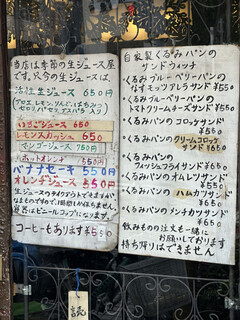 当店は季節の生ジュース屋
です。只今の生ジュースは、
活性生ジュース 650円
いちごジュース 650
レモンスカッシュ 650
マンゴージュース 750円
ホットオレンヂ 550
バナナセーキ 550円
オレンヂジュース 550円
生ジュースのテイクアウトできますが、
コーヒーもあります ¥550
自家製くるみパンの
サンドウィッチ
・くるみブルーベリーパンの
なすモッツアレラサンド ¥550
・くるみブルーベリーパンの
トマトクリームチーズサンド ¥550
・くるみパンのコロッケサンド
¥650
・くるみパンのクリームコロッケ
サンド ¥650
・くるみパンの
フィッシュフライサンド ¥650
・くるみパンのオムレツサンド
¥650
・くるみパンのハムカツサンド
¥650
・くるみパンのメンチカツサンド
¥650
飲みもの注文も一緒に
お願いしております
持ち帰りはできません
読